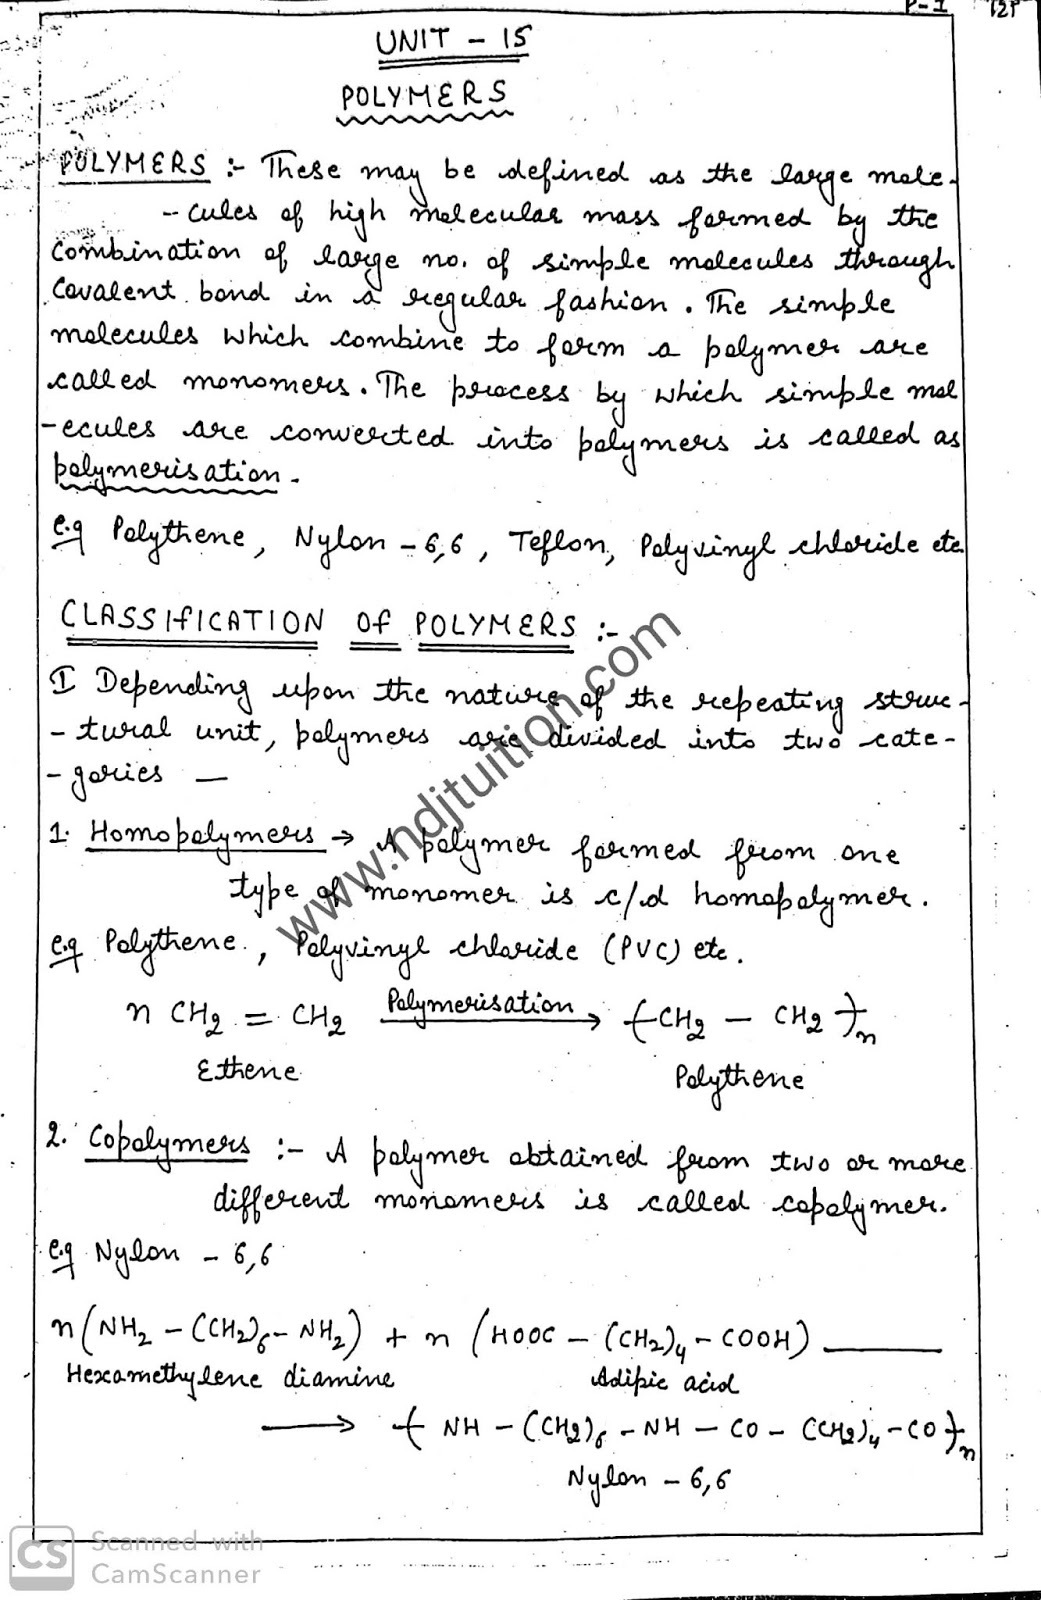 P-1 121
UNIT - 15
POLYMERS
POLYMERS :- These may be defined as the large mole-
- cules of high molecular mass formed by the
combination of large no. of simple molecules through
Covalent bond in a regular fashion. The simple
molecules which combine to form a polymer are
called monomers. The process by which simple mol
-ecules are converted into polymers is called as
polymerisation.
e.g Polythene, Nylon - 6,6, Teflon, Polyvinyl chloride etc
CLASSIfICATION Of POLYMERS :-
I Depending upon the nature of the repeating struc-
- tural unit, polymers are divided into two cate-
- gories —
1. Homopolymers → A polymer formed from one
type of monomer is c/d homopolymer.
e.g Polythene, Polyvinyl chloride (PVC) etc.
n CH2 = CH2 Polymerisation → ( CH2 - CH2 )n
Ethene Polythene
2. Copolymers :- A polymer obtained from two or more
different monomers is called copolymer.
e.g Nylon - 6,6
n (NH2 - (CH2)6 - NH2) + n (HOOC - (CH2)4 - COOH) ———
Hexamethylene diamine Adipic acid
→ ( NH - (CH2)6 - NH - CO - (CH2)4 - CO )n
Nylon - 6,6
www.ndjtuition.com
CS Scanned with
CamScanner